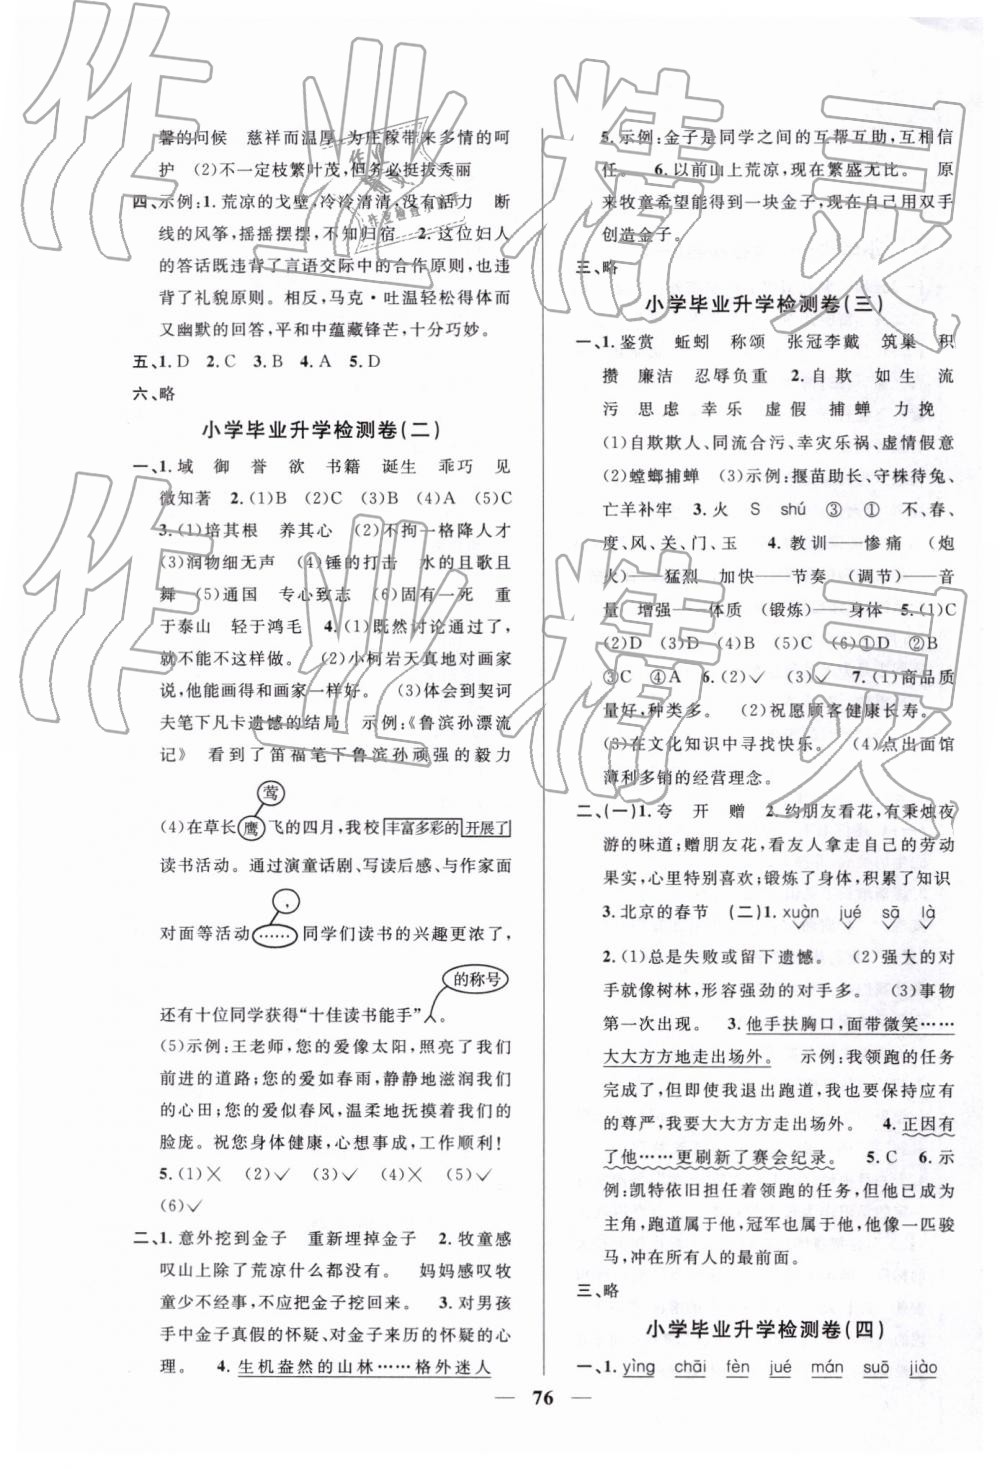 馨的问候　慈祥而温厚　为庄稼带来多情的呵
护　(2)不一定枝繁叶茂，但务必挺拔秀丽
四、示例:1. 荒凉的戈壁，冷冷清清，没有活力　断
线的风筝，摇摇摆摆，不知归宿　2. 这位妇人
的答话既违背了言语交际中的合作原则，也违
背了礼貌原则。相反，马克·吐温轻松得体而
又幽默的回答，平和中蕴藏锋芒，十分巧妙。
五、1. D　2. C　3. B　4. A　5. D
六、略
小学毕业升学检测卷(二)
一、1. 域　御　誉　欲　书籍　诞生　乖巧　见
微知著　2. (1)B　(2)C　(3)B　(4)A　(5)C
3. (1)培其根　养其心　(2)不拘一格降人才
(3)润物细无声　(4)锤的打击　水的且歌且
舞　(5)通国　专心致志　(6)固有一死　重
于泰山　轻于鸿毛　4. (1)既然讨论通过了，
就不能不这样做。　(2)小柯岩天真地对画家
说，他能画得和画家一样好。　(3)体会到契诃
夫笔下凡卡遗憾的结局　示例:《鲁滨孙漂流
记》　看到了笛福笔下鲁滨孙顽强的毅力
莺
(4)在草长鹰飞的四月，我校丰富多彩的开展了
读书活动。通过演童话剧、写读后感、与作家面
，
对面等活动……同学们读书的兴趣更浓了，
的称号
还有十位同学获得“十佳读书能手”。
(5)示例:王老师，您的爱像太阳，照亮了我们
前进的道路；您的爱如春雨，静静地滋润我们
的心田；您的爱似春风，温柔地抚摸着我们的
脸庞。祝您身体健康，心想事成，工作顺利！
5. (1)×　(2)✓　(3)✓　(4)✓　(5)✓
(6)✓
二、1. 意外挖到金子　重新埋掉金子　2. 牧童感
叹山上除了荒凉什么都没有。　妈妈感叹牧
童少不经事，不应把金子挖回来。　3. 对男孩
手中金子真假的怀疑、对男孩动机的怀疑的心
理。　4. 生机盎然的山林……格外迷人
5. 示例:金子是同学之间的互帮互助，互相信
任。　6. 以前山上荒凉，现在繁盛无比。　原
来牧童希望能得到一块金子，现在自己用双手
创造金子。
三、略
小学毕业升学检测卷(三)
一、1. 鉴赏　蚯蚓　称颂　张冠李戴　筑巢　积
攒　廉洁　忍辱负重　2. 自欺　如生　流
污　思虑　幸乐　虚假　捕蝉　力挽
(1)自欺欺人、同流合污、幸灾乐祸、虚情假意
(2)螳螂捕蝉　(3)示例:揠苗助长、守株待兔、
亡羊补牢　3. 火　S　shú　③　①　不、春、
度、风、关、门、玉　4. 教训——惨痛　(炮
火)——猛烈　加快——节奏　(调节)——音
量　增强——体质　(锻炼)——身体　5. (1)C
(2)D　(3)B　(4)C　(5)A　(6)①D　②B
③C　④A　6. (2)✓　(3)✓　7. (1)商品质
量好，种类多。　(2)祝愿顾客健康长寿。
(3)在文化知识中寻找快乐。　(4)点出面馆
薄利多销的经营理念。
二、(一)1. 夸　开　赠　2. 约朋友看花，有秉烛夜
游的味道；赠朋友花，看友人拿走自己的劳动
果实，心里特别喜欢；锻炼了身体，积累了知识
3. 北京的春节　(二)1. xuàn　jué　sā　là
2. (1)总是失败或留下遗憾。　(2)强大的对
手就像树林，形容强劲的对手多。　(3)事物
第一次出现。　3. 他手扶胸口，面带微笑……
大大方方地走出场外。　示例:我领跑的任务
完成了，但即使我退出跑道，也要保持应有
的尊严，我要大大方方走出场外。　4. 正因有
了他……更刷新了赛会纪录。　5. C　6. 示
例:凯特依旧担任着领跑的任务，但他已成为
主角，跑道属于他，冠军也属于他，他像一匹骏
马，冲在所有人的最前面。
三、略
小学毕业升学检测卷(四)
一、1. yìng　chāi　fèn　jué　mán　suō　jiào
76
作业精灵
作业精灵